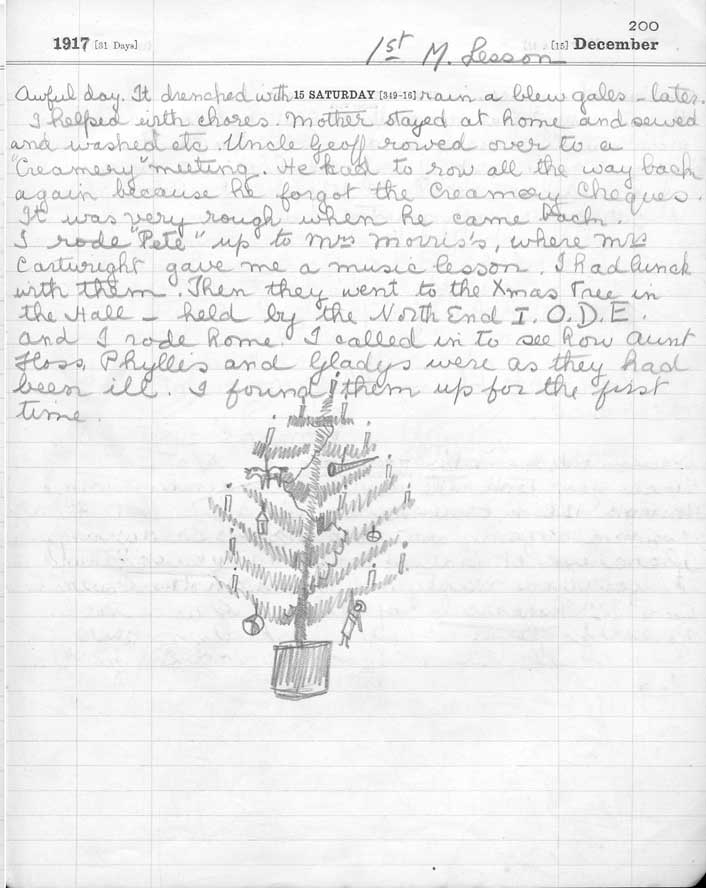 200
1917 [31 Days] 1st M. Lesson [15] December
Awful day. It drenched with 15 SATURDAY [349-16] rain a blew gales - later.
I helped with chores. Mother stayed at home and sewed
and washed etc. Uncle Geoff rowed over to a
"Creamery" meeting. He had to row all the way back
again because he forgot the Creamery Cheques.
It was very rough when he came back.
I rode "Pete" up to Mrs Morris's, where Mrs
Cartwright gave me a music lesson. I had lunch
with them. Then they went to the Xmas Tree in
the Hall - held by the North End I.O.D.E.
and I rode home. I called in to see how Aunt
Floss, Phyllis and Gladys were as they had
been ill. I found them up for the first
time.